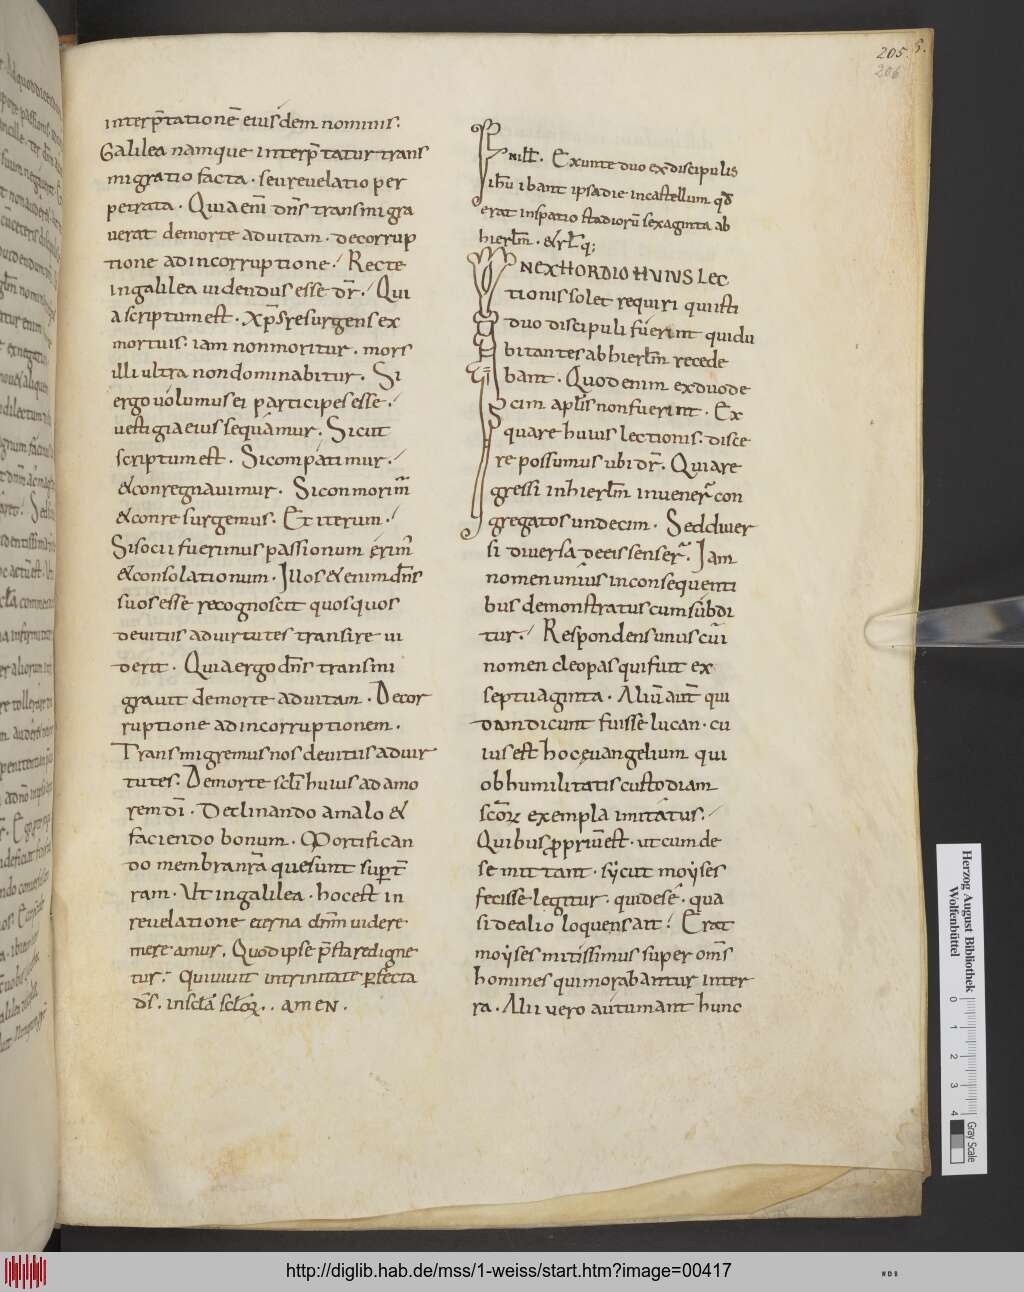 205.
206
interp̄tationē eiusdem nominis.
Galilea namque interp̄tatur trans
migratio facta. seu reuelatio per
petrata. Quia enī dn̄s transmigra
uerat de morte ad uitam. de corrup
tione ad incorruptione. Recte
in galilea uidendus esse dr̄. Qui
a scriptum est. Xp̄s resurgens ex
mortuis. iam non moritur. mors
illi ultra non dominabitur. Si
ergo uolumus ei participes esse.
uestigia eius sequamur. Sicut
scriptum est. Si compatimur.
& conregnauimur. Si conmorim̄
& conresurgemus. Et iterum.
Si socii fuerimus passionum erim̄
& consolationum. Illos & enim dn̄s
suos esse recognoscit quos quos
de uitiis ad uirtutes transire ui
derit. Quia ergo dn̄s transmi
grauit de morte ad uitam. De cor
ruptione ad incorruptionem.
Transmigremus nos de uitiis ad uir
tutes. De morte scl̄i huius ad amo
rem dī. Declinando a malo &
faciendo bonum. Mortifican
do membra nr̄a que sunt sup t̄
ram. Ut in galilea. hoc est in
reuelatione eterna dnm̄ uidere
mereamur. Quod ipse p̄stare digne
tur. Qui uiuit in trinitate perfecta
ds̄. in scl̄a scl̄oꝝ.. AMEN.
In ill̄. Exunte duo ex discipulis
ihū ibant ipsa die in castellum qd̄
erat in spatio stadiorū sexaginta ab
hierlm̄. & rl̄q;
IN EXHORDIO HUIUS LEC
tionis solet requiri qui isti
duo discipuli fuerint qui du
bitantes ab hierlm̄ recede
bant. Quod enim ex duode
cim apl̄is non fuerint. Ex
quare huius lectionis. disce
re possumus ubi dr̄. Quia re
gressi in hierlm̄ inuener̄ con
gregatos undecim. Sed diuer
si diuersa de eis senser̄. Iam
nomen unius in consequenti
bus demonstratus cum subdi
tur. Respondens unus cui
nomen cleopas qui fuit ex
septuaginta. Aliū aut̄ qui
dam dicunt fuisse lucan. cu
ius est hoc euangelium qui
ob humilitatis custodiam
scōꝝ exempla imitatus.
Quibus ꝓpriū est. ut cum de
se mittant. sẏcut moẏses
fecisse legitur. qui de se. qua
si de alio loquens ait. Erat
moẏses mitissimus super om̄s
homines qui morabantur in ter
ra. Alii uero autumant hunc
Herzog August Bibliothek
Wolfenbüttel
0 1 2 3 4
Gray Scale
http://diglib.hab.de/mss/1-weiss/start.htm?image=00417